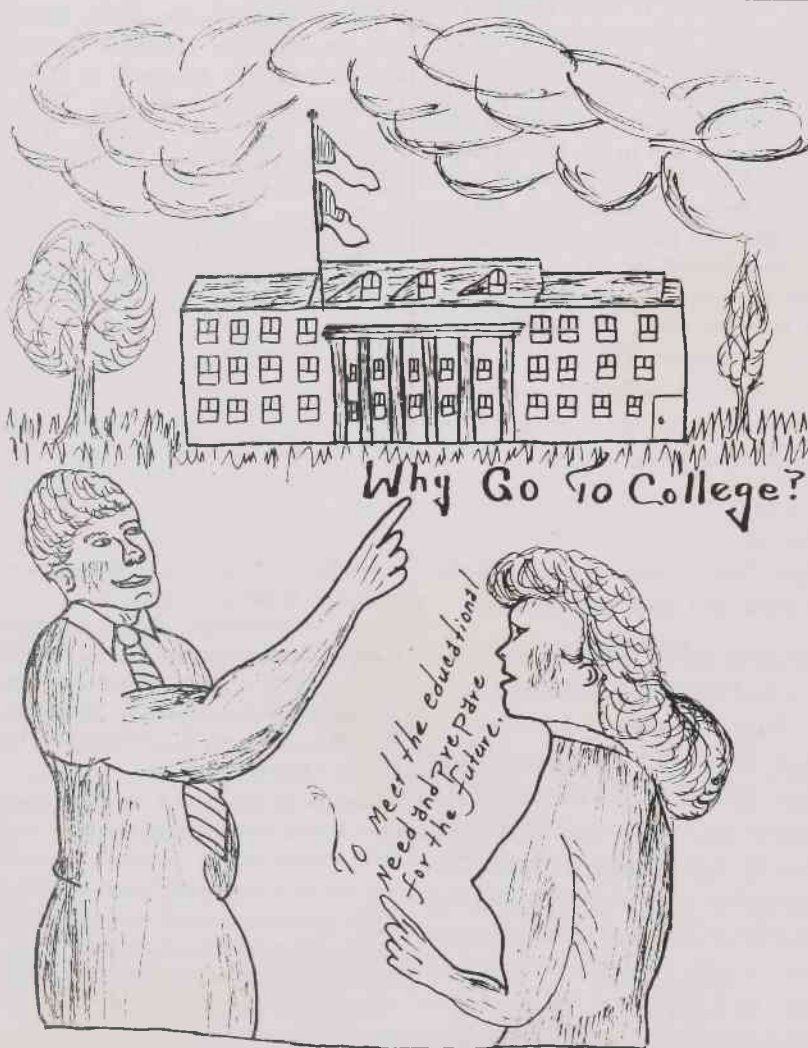 Why Go To College?
To meet the educational
Need and prepare
for the future.